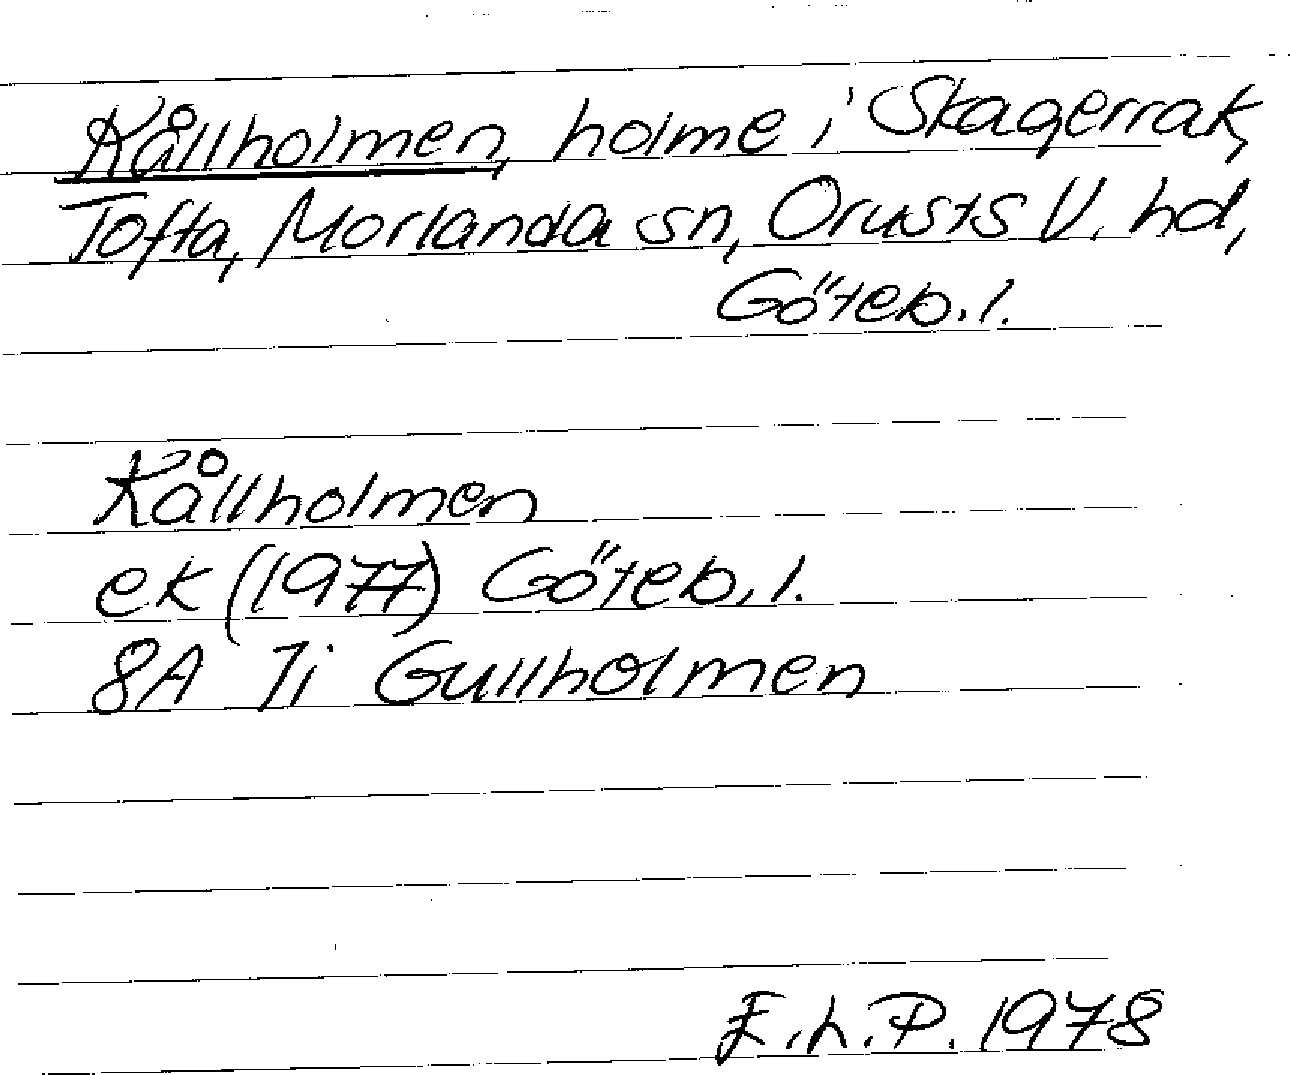 Kållholmen, holme i Skagerrak,
Tofta, Morlanda sn, Orusts V. hd,
Göteb. l.
Kållholmen
ek (1977) Göteb. l.
8A 7i Gullholmen
E.h.P. 1978